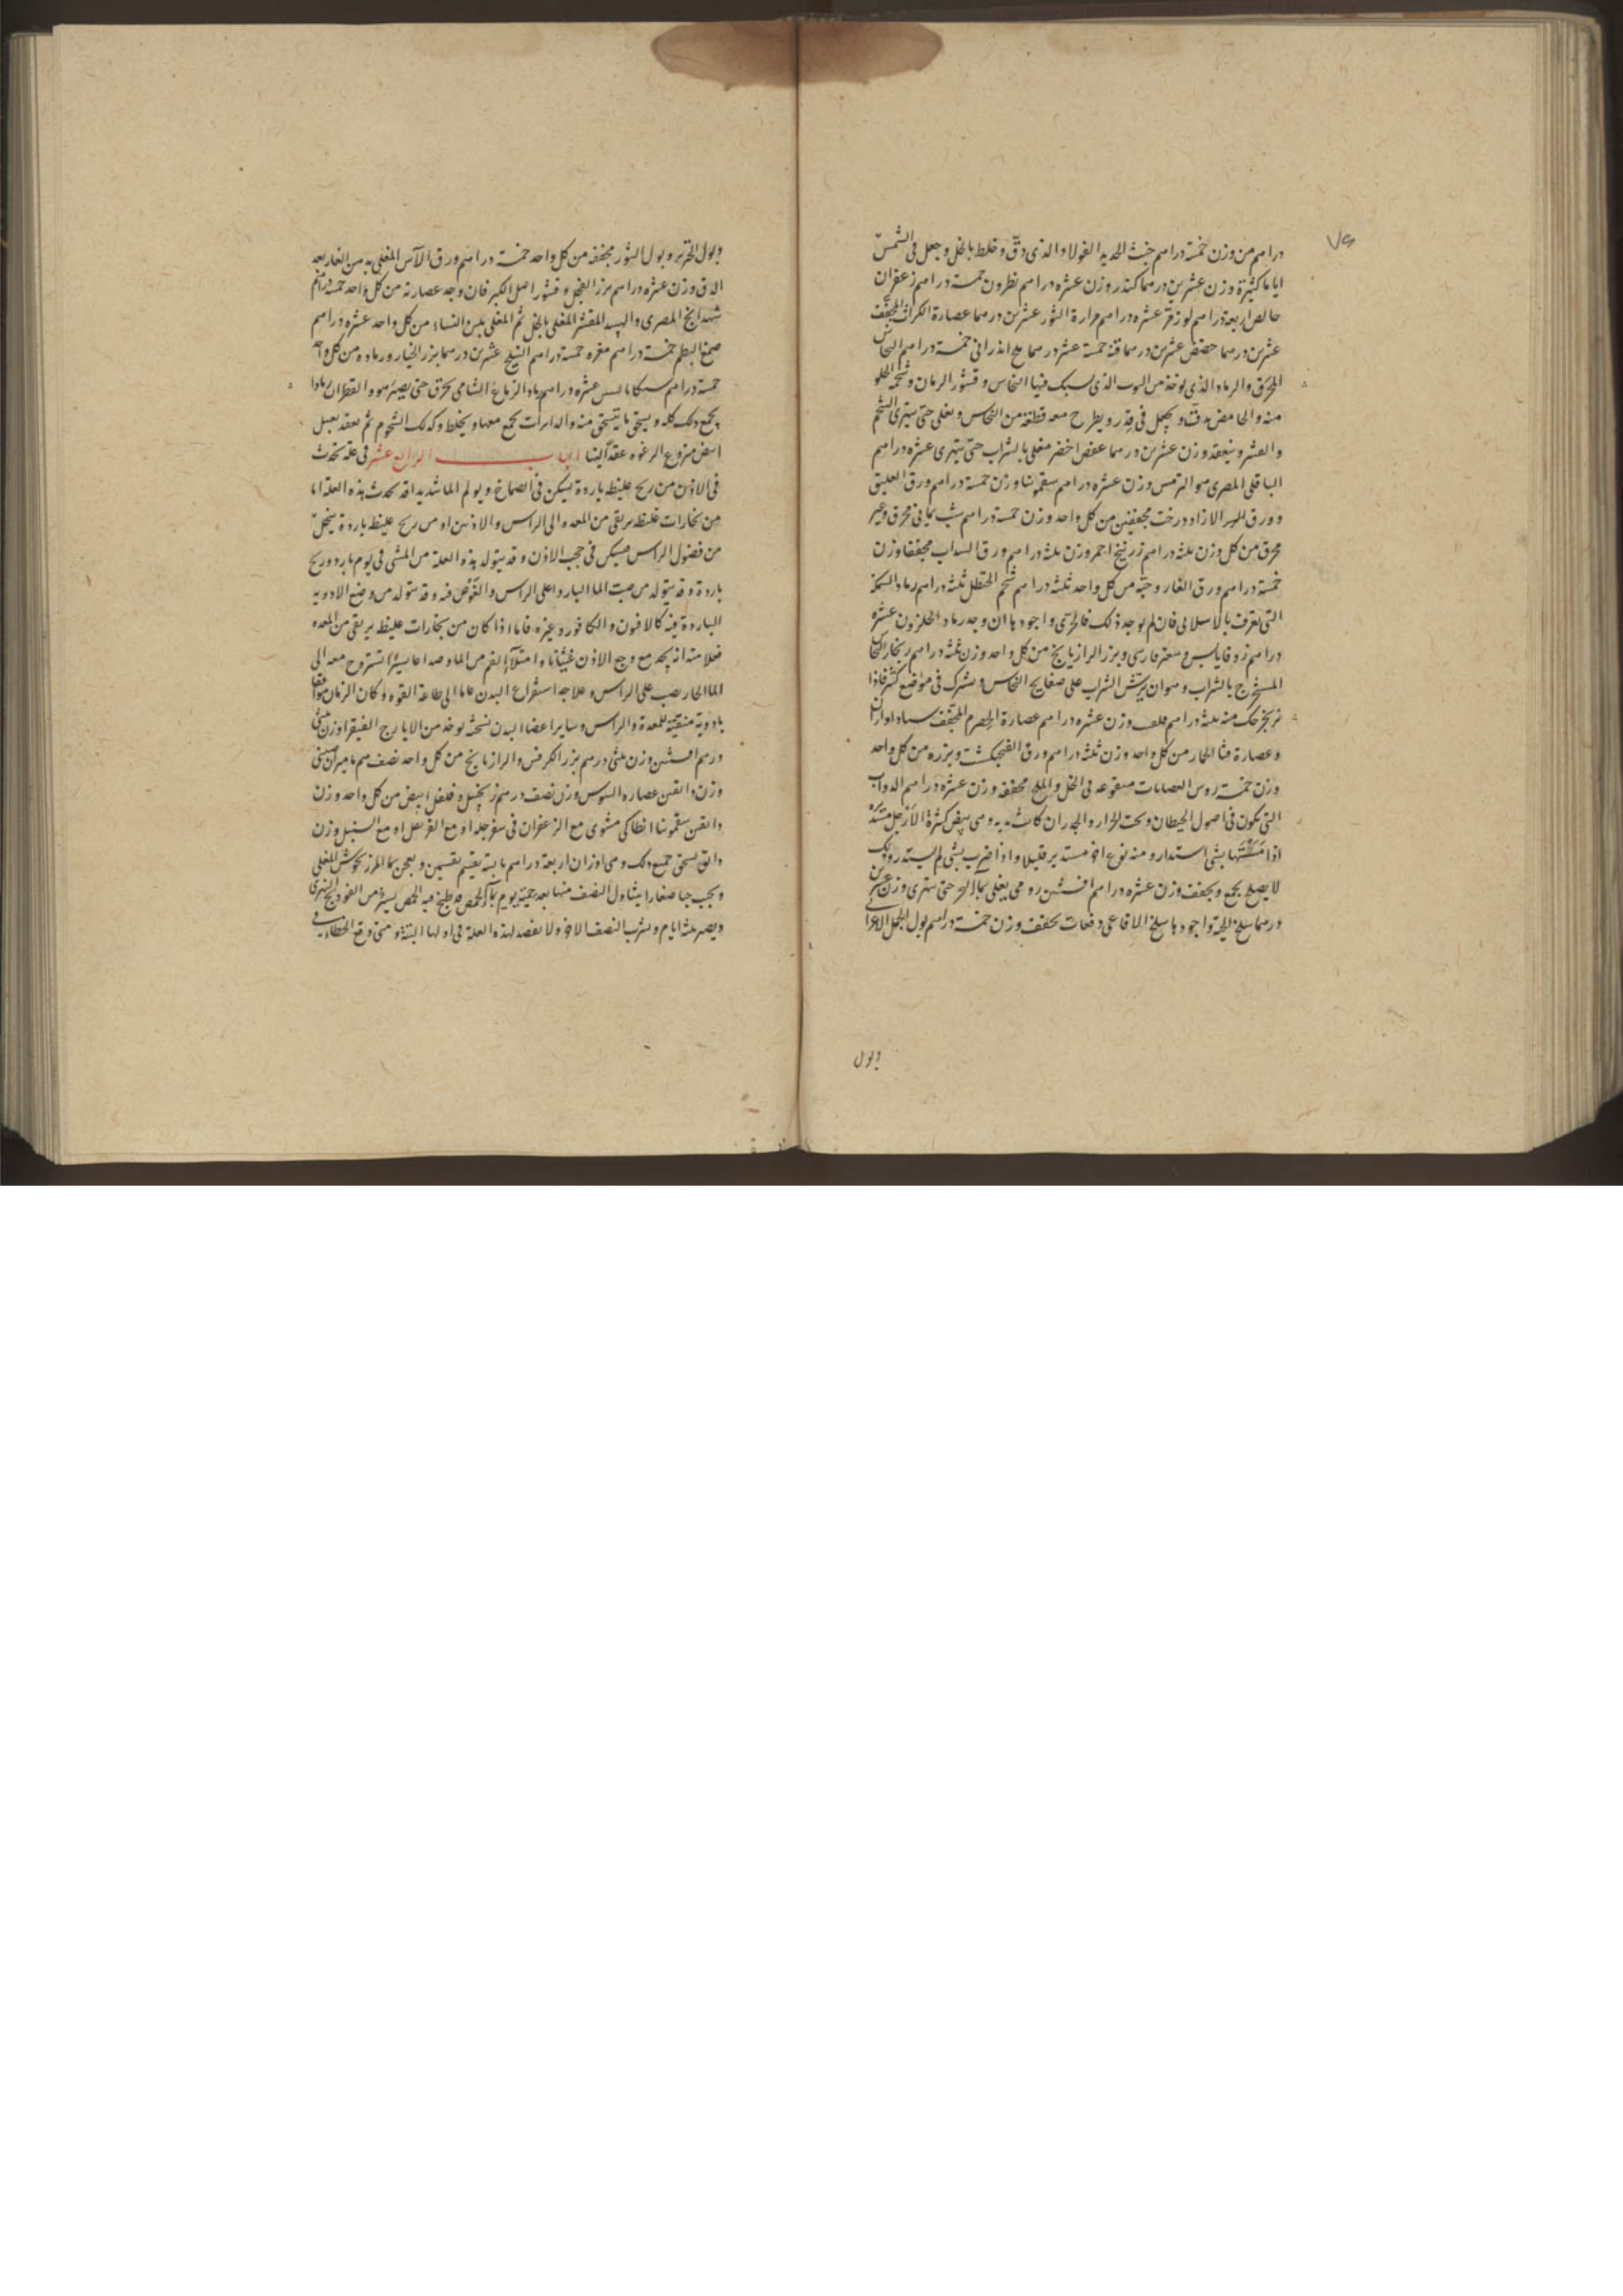 ٧٩
دراهم من وزن خمسة دراهم خبث الحديد الفولاد الذى دق وخلط بالخل وجعل فى الشمس
اياما كثيرة وزن عشرين درهما كندر وزن عشره دراهم نطرون خمسة دراهم زعفران
خالص اربعة دراهم لوز مر عشره دراهم مرارة الثور عشرين درهما عصارة الكراث المجفف
عشرين درهما حضض عشرين درهما قنه خمسة عشر درهما ملح اندرانى خمسة دراهم النحاس
المحرق والرماد الذى يوخذ من البوت الذى يسبك فيها النحاس وقشور الرمان وشحمه الحلو
منه والحامض يدق ويجعل فى قدر ويطرح معه قطعة من النحاس ويغلى حتى يتهرى الشحم
والقشر وينعقد وزن عشرين درهما عفص اخضر مغلى بالشراب حتى يتهرى عشره دراهم
الباقلى المصرى هو الترمس وزن عشره دراهم سقمونيا وزن خمسة دراهم ورق العليق
وورق الازاددرخت مجففين من كل واحد وزن خمسة دراهم شب يمانى محرق وغير
محرق من كل وزن ثلثه دراهم زرنيخ احمر وزن ثلثه دراهم ورق السداب مجففا وزن
خمسة دراهم ورق الغار وحبه من كل واحد ثلثه دراهم شحم الحنظل ثلثه دراهم رماد السمكة
التى تعرف بالاسلانى فان لم يوجد ذلك فالجرى واجودها ان وجد رماد الحلزون عشره
دراهم زوفا يابس وصعتر فارسى وبزر الرازيانج من كل واحد وزن ثلثه دراهم زنجار النحاس
المستخرج بالشراب وهو ان يرش الشراب على صفايح النحاس ويترك فى موضع فاذا
تزنجر حك منه ثلثه دراهم وزن عشره دراهم عصارة الحصرم المجفف
وعصارة قثا الحمار من كل واحد وزن ثلثه دراهم ورق الفنجنكشت وبزره من كل واحد
وزن خمسة روس منقوعه فى الخل والملح مجففه وزن عشره دراهم الدواب
التى تكون فى اصول الحيطان وتحت الجرار والجدران وهى بيض كثيرة الارجل
اذا مسستها بشى استدار ومنه نوع اخر مستدير قليلا واذا ضرب بشى لم يستدر وذلك
لا يصلح يجمع ويجفف وزن عشره دراهم افسنتين رومى يغلى بماء حتى يتهرى وزن عشرين
درهما سلخ الحية واجودها سلخ الافاعى دفعات يجفف وزن خمسة دراهم بول الجمل الاعرابى
وبول
وبول الخنزير وبول الثور مجففه من كل واحد خمسة دراهم ورق الآس المغلى بدهن الغار بعد
الدق وزن عشره دراهم بزر الفجل وقشور اصل الكبر فان وجد عصارته من كل واحد خمسة دراهم
شهدانج المصرى والهبيد المقشر المغلى بالخل ثم المغلى بلبن النساء من كل واحد عشره دراهم
صمغ البطم خمسة دراهم مغره خمسة دراهم عشرين درهما بزر الخيار ورماده من كل واحد
خمسة دراهم عشره دراهم رماد الزجاج الشامى يحرق حتى يصير هو والقطران رمادا
يجمع ذلك كله ويسحق ما ينسحق منه والمرارات تجمع معها ويخلط وكذلك الشحوم ثم يعقد بعسل
ابيض منزوع الرغوه عقدا لينا الباب الرابع عشر فى علة تحدث
فى الاذن من ريح غليظ باردة يسكن فى الصماخ ويولم الما شديدا قد تحدث هذه العلة اما
من بخارات غليظ يرتقى من المعده الى الراس والاذنين او من ريح غليظ باردة ينحل
من فضول الراس فيسكن فى حجب الاذن وقد يتولد هذه العلة من المشى فى يوم بارد وريح
باردة وقد يتولد من صب الما البارد على الراس والغوص فيه وقد يتولد من وضع الادويه
الباردة فيه كالافيون والكافور وغيره فاما اذا كان من بخارات غليظ يرتقى من المعده
فعلامته انه يجد مع وجع الاذن غثيانا وامتلآ الفم من الما وصداعا يسيرا تستروح معه الى
الما الحار يصب على الراس وعلاجه استفراغ البدن عاما الى طاعة القوه وكان الزمان موافقا
بادوية منقية للمعدة والراس وساير اعضا البدن نسخته يوخذ من الايارج الفيقرا وزن ثلثى
درهم افسنتين وزن ثلثى درهم بزر الكرفس والرازيانج من كل واحد نصف درهم ماميران صينى
وزن دانقين عصاره السوس وزن نصف درهم زنجبيل وفلفل ابيض من كل واحد وزن
دانقين سقمونيا انطاكى مشوى مع الزعفران فى سفرجله او مع القرنفل او مع السنبل وزن
دانق يسحق جميع ذلك وهى اوزان اربعة دراهم يقسم بقسمين ويعجن بما المرزنجوش المغلى
ويحبب حبا صغارا يتناول النصف منها بعد حمية يوم بماء الحمص قد طبخ فيه الحمص يسير من الفودنج النهرى
ويصبر ثلثه ايام ويشرب النصف الاخر ولا يفصد لهذه العلة فى اولها البتة ومتى وقع الخطاء فى